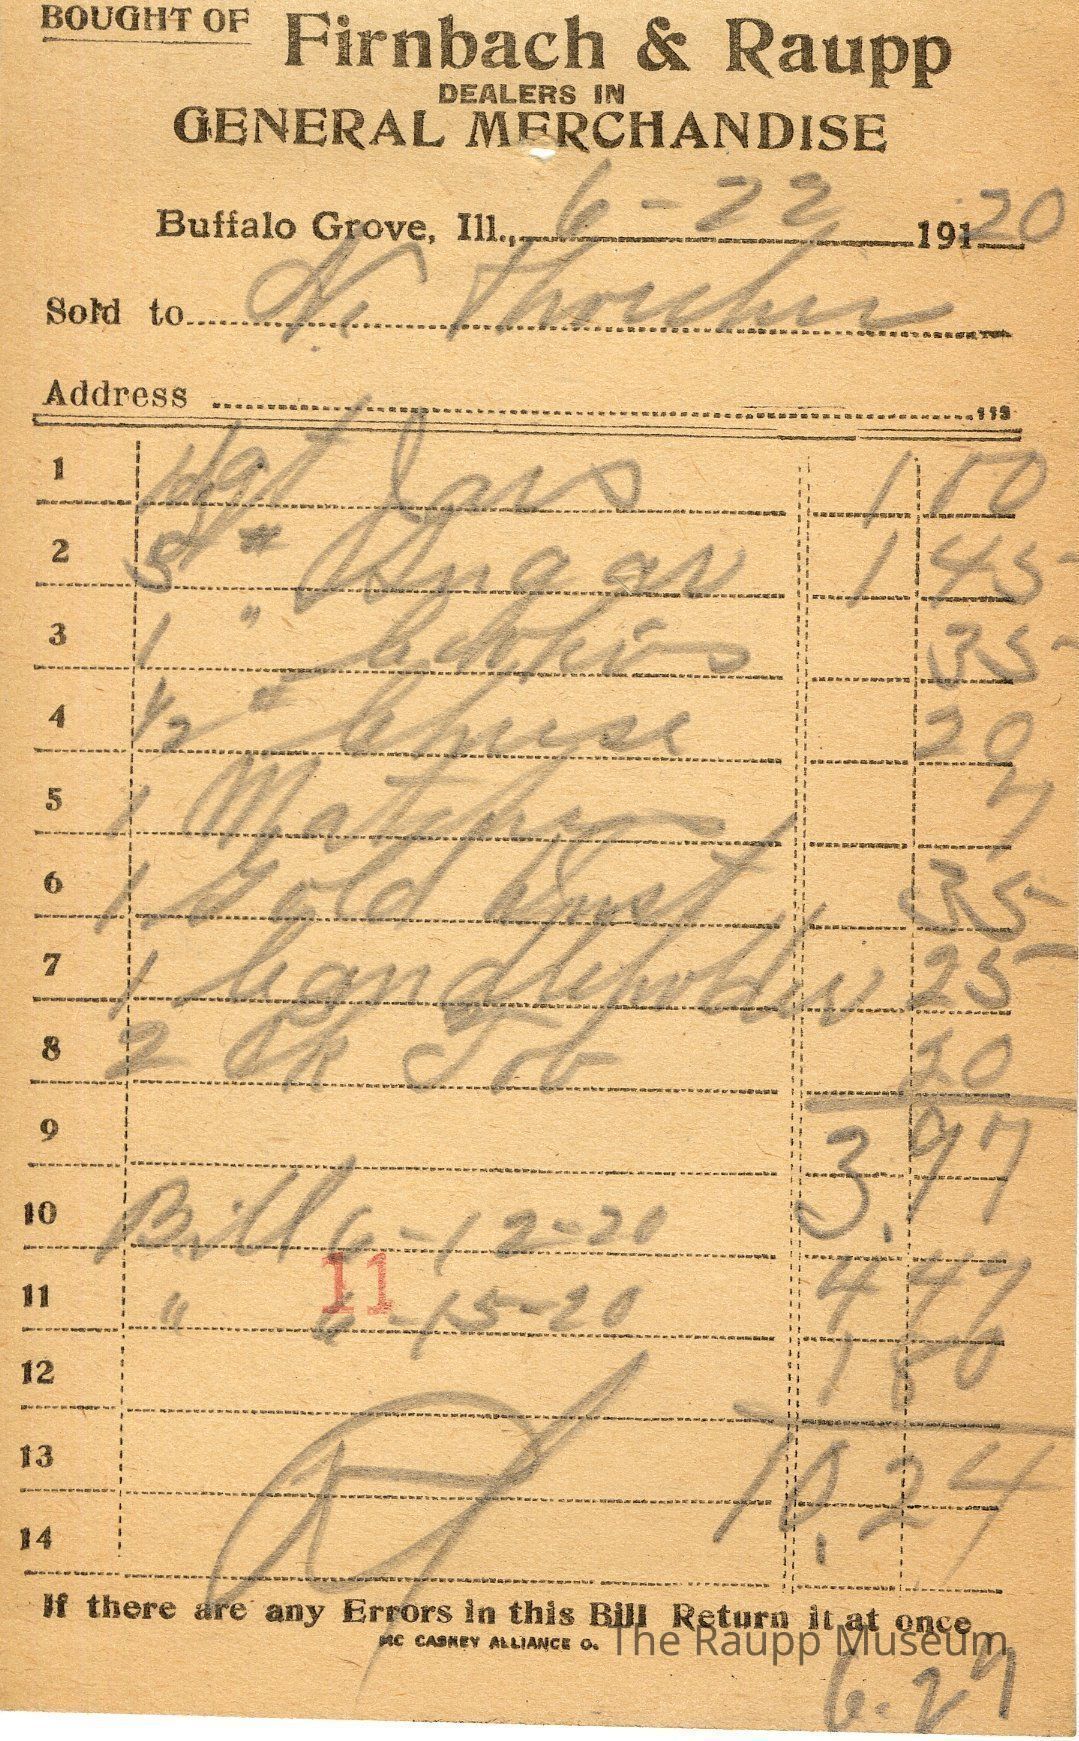 BOUGHT OF Firnbach & Raupp
DEALERS IN
GENERAL MERCHANDISE
Buffalo Grove, Ill., 6-22 191 20
Sold to N.
Address 113
1 Qt Jars 1 10
2 5 # Sugar 1 45
3 1 " 35
4 1/2 # Cheese 20
5 1 Matches 7
6 1 Gold Dust 35
7 1 Candleholder 25
8 2 Ck Tob 20
9 3.97
10 Bill 6-12-20
11 " 6-15-20 4 47
11
12 1 80
13 10.24
14
If there are any Errors in this Bill Return it at once
MC CASKEY ALLIANCE O.
The Raupp Museum
6.27